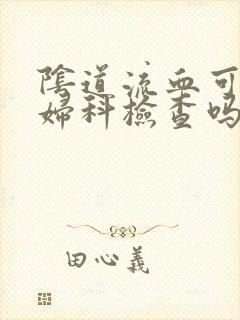 陰道流血可
婦科檢查嗎
田心義